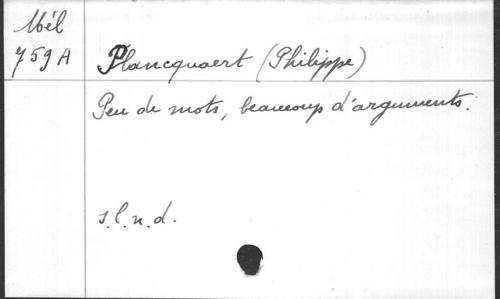 Mél
759 A
Plancquaert (Philippe)
Peu de mots, beaucoup d'arguments.
s.l.n.d.